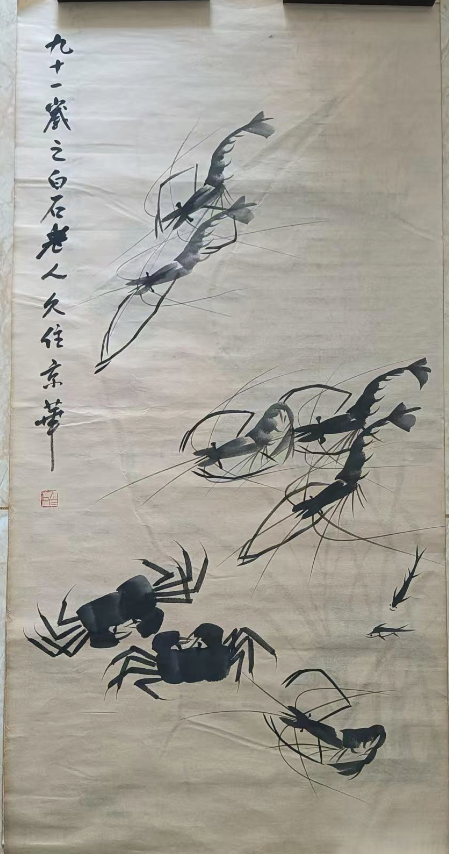 九十一歲之白石老人久住京華